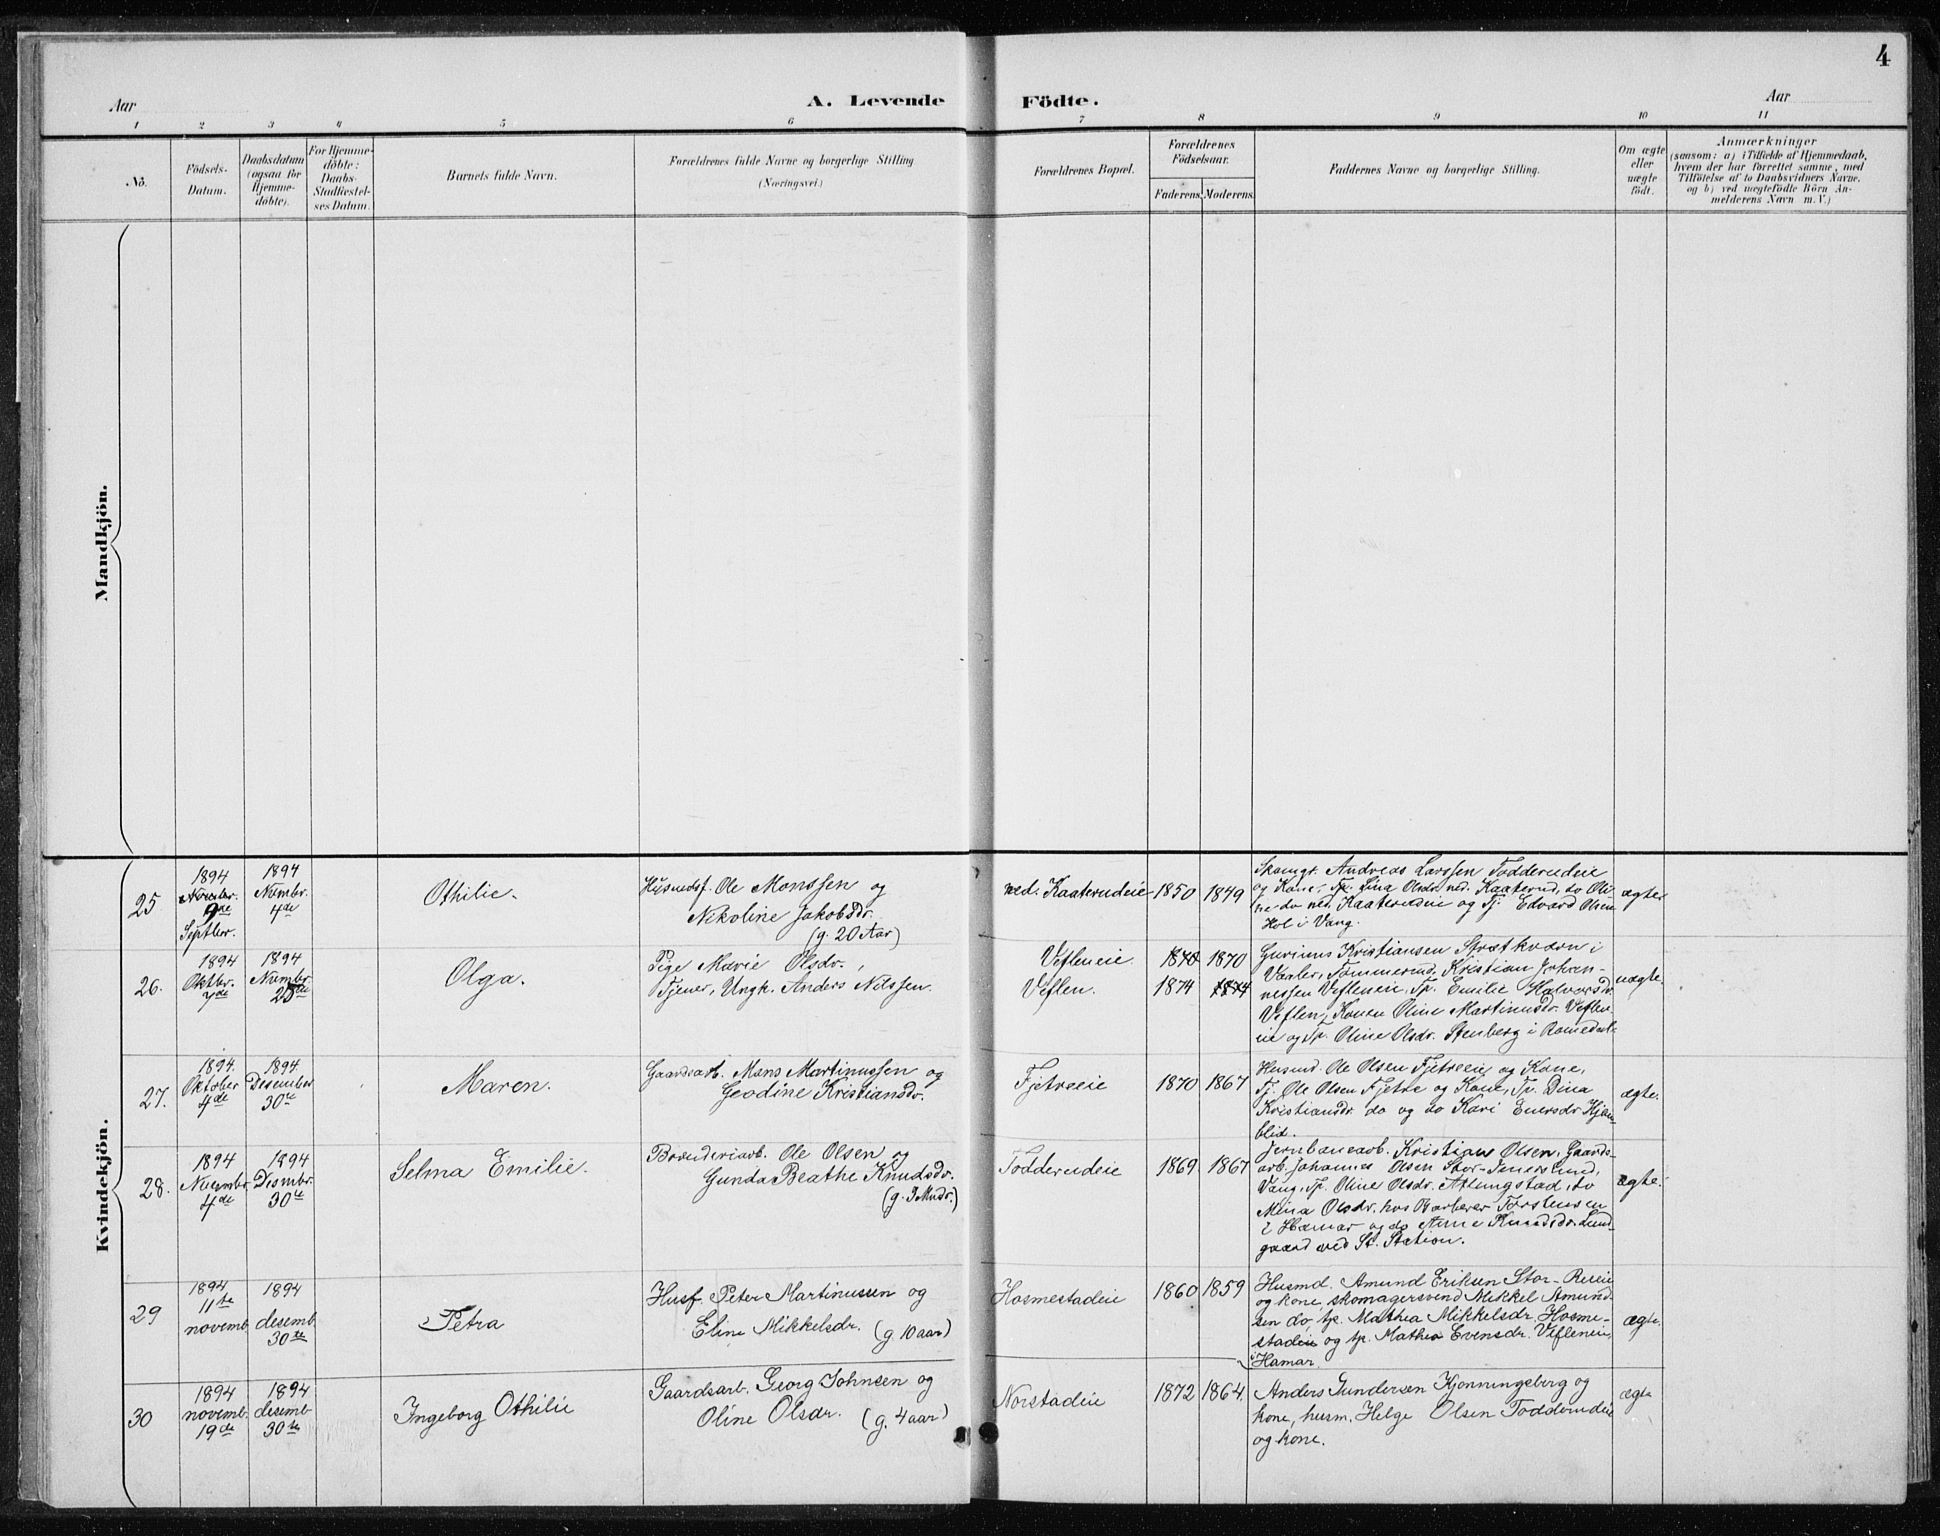 4
Aar
A. Levende
Födte.
Aar
1 2 3 4 5 6 7 8 9 10 11
No.
Födsels-
Datum.
Daabsdatum
(ogsaa for
Hjemme-
döbte).
For Hjemme-
döbte:
Daabs-
Stadfæstel-
ses Datum.
Barnets fulde Navn.
Forældrenes fulde Navne og borgerlige Stilling
(Næringsvei.)
Forældrenes Bopæl.
Forældrenes
Födselsaar.
Faderens. Moderens.
Faddernes Navne og borgerlige Stilling.
Om ægte
eller
uægte
födt.
Anmærkninger
(saasom: a) i Tilfælde af Hjemmedaab,
hvem der har forrettet samme, med
Tilföielse af to Daabsvidners Navne,
og b) ved uægtefödte Börn An-
melderens Navn m. V.)
Mandkjön.
Kvindekjön.
25.
1894
9de
Septbr.
1894
Nvmbr.
4de
Othilie.
Husmdsf. Ole Monssen og
Nikoline Jakobsdr.
(g. 20 Aar)
ned. Kaaterudeie
1850
1849
Skomgr. Andreas Larssen Todderudeie
og Kone, Tp. Lina Olsdr. ned. Kaaterud, do Oli-
ne do ned. Kaaterudeie og Tj. Edvard Olsen
Hol i Vang.
ægte
26.
1894
Oktbr.
7de
1894
Nvmbr.
25de
Olga.
Pige Marie Olsdr.,
Tjener, Ungk. Anders Nilssen.
Vefleneie.
Veflen.
1870 1870
1874 1874
Gurinus Kristiansen Strætkværn i
Vaaler, Tømmermd. Kristian Johan-
nessen Vefleneie, Tp. Emilie Halvorsdr.
Veflen, Konen Oline Martinusdr. Veflen-
eie og Tp. Oline Olsdr. Stenberg i Romedal.
uægte.
27.
1894.
Oktober
4de
1894
Desember
30te
Maren.
Gaardsarb. Mons Martinussen og
Geodine Kristiansdr.
Fjetreeie
1870
1867
Husmd. Ole Olsen Fjetreeie og Kone,
Tj. Ole Olsen Fjetre og Kone, Tp. Dina
Kristiansdr. do og do Kari Enersdr. Hjem-
blid.
ægte.
28.
1894
November
4de
1894
Desmbr.
30te
Selma Emilie.
Brænderiarb. Ole Olsen og
Gunda Beathe Knudsdr.
(g. 9 Mndr.)
Todderudeie
1869
1867
Jernbanearb. Kristian Olsen, Gaards-
arb. Johannes Olsen Stor-
Vang, Tp. Oline Olsdr. Atlungstad, do
Mina Olsdr. hos Barberer Torstensen
i Hamar og do Anne Knudsdr. Lund-
gaard ved St. Station.
ægte.
29
1894
11te
novemb.
1894
desemb.
30te
Petra
Husf. Peter Martinussen og
Eline Mikkelsdr. (g. 10 aar)
Hosmestadeie
1860
1859
Husmd. Amund Eriksen Stor-Reseie
og kone, skomagersvend Mikkel Amund-
sen do, tp. Mathea Mikkelsdr. Hosme-
stadeie og tp. Mathea Evensdr. Vefleneie,
i Hamar.
ægte.
30
1894
novemb.
19de
1894
desemb.
30te
Ingeborg Othilie
Gaardsarb. Georg Johnsen og
Oline Olsdr. (g. 4 aar)
Norstadeie
1872
1864.
Anders Gundersen Kjonningsberg og
kone, husm. Helge Olsen Todderudeie
og kone.
ægte